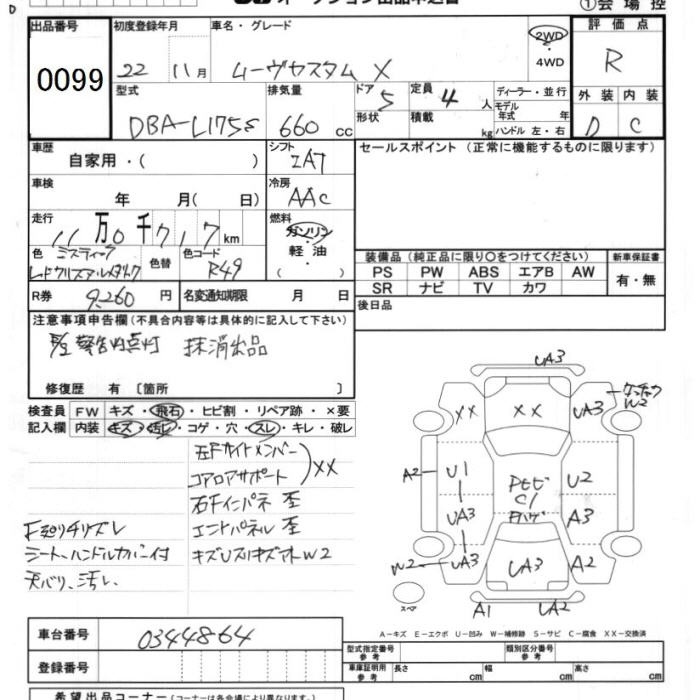 ①会場控
出品番号 初度登録年月 車名・グレード 2WD・4WD 評価点
0099 22年 11月 ムーヴカスタム X R
型式 排気量 ドア 定員 ディーラー・並行
DBA-L175S 660 cc 5 4人 モデル年式 年
形状 積載 kg ハンドル 左・右
外装 内装
D C
車歴 自家用・( )
シフト IAT
セールスポイント (正常に機能するものに限ります)
車検 年 月( 日)
冷房 AAC
走行 11万0千717km
燃料 ガソリン 軽油 ( )
色 ミスティック
レッドクリスタルメタリック
色替 色コード R49
装備品(純正品に限り〇をつけてください) 新車保証書
PS PW ABS エアB AW 有・無
SR ナビ TV カワ
R券 9,260円 名変通知期限 月 日
後日品
注意事項申告欄(不具合内容等は具体的に記入して下さい)
警告灯点灯 抹消出品
修復歴 有 〔箇所 〕
検査員記入欄 FW キズ・飛石・ヒビ割・リペア跡・×要
内装 キズ・汚レ・コゲ・穴・スレ・キレ・破レ
左Fサイドメンバー
コアロアサポート
XX
右Fインパネ 歪
エンドパネル 歪
F廻りチリズレ
シート、ハンドルカバー付
キズU大小キズオホW2
天バリ、汚レ
UA3
XX XX UA3 W2
A2 U1 U2
C1
UA3 A3
W2 UA3 UA3 A2
スペア
A1 UA2
A-キズ E-エクボ U-凹み W-補修跡 S-サビ C-腐食 XX-交換済
車台番号 0344864
登録番号
型式指定番号参考 類別区分番号参考
車庫証明用参考 長さ cm 幅 cm 高さ cm
希望出品コーナー